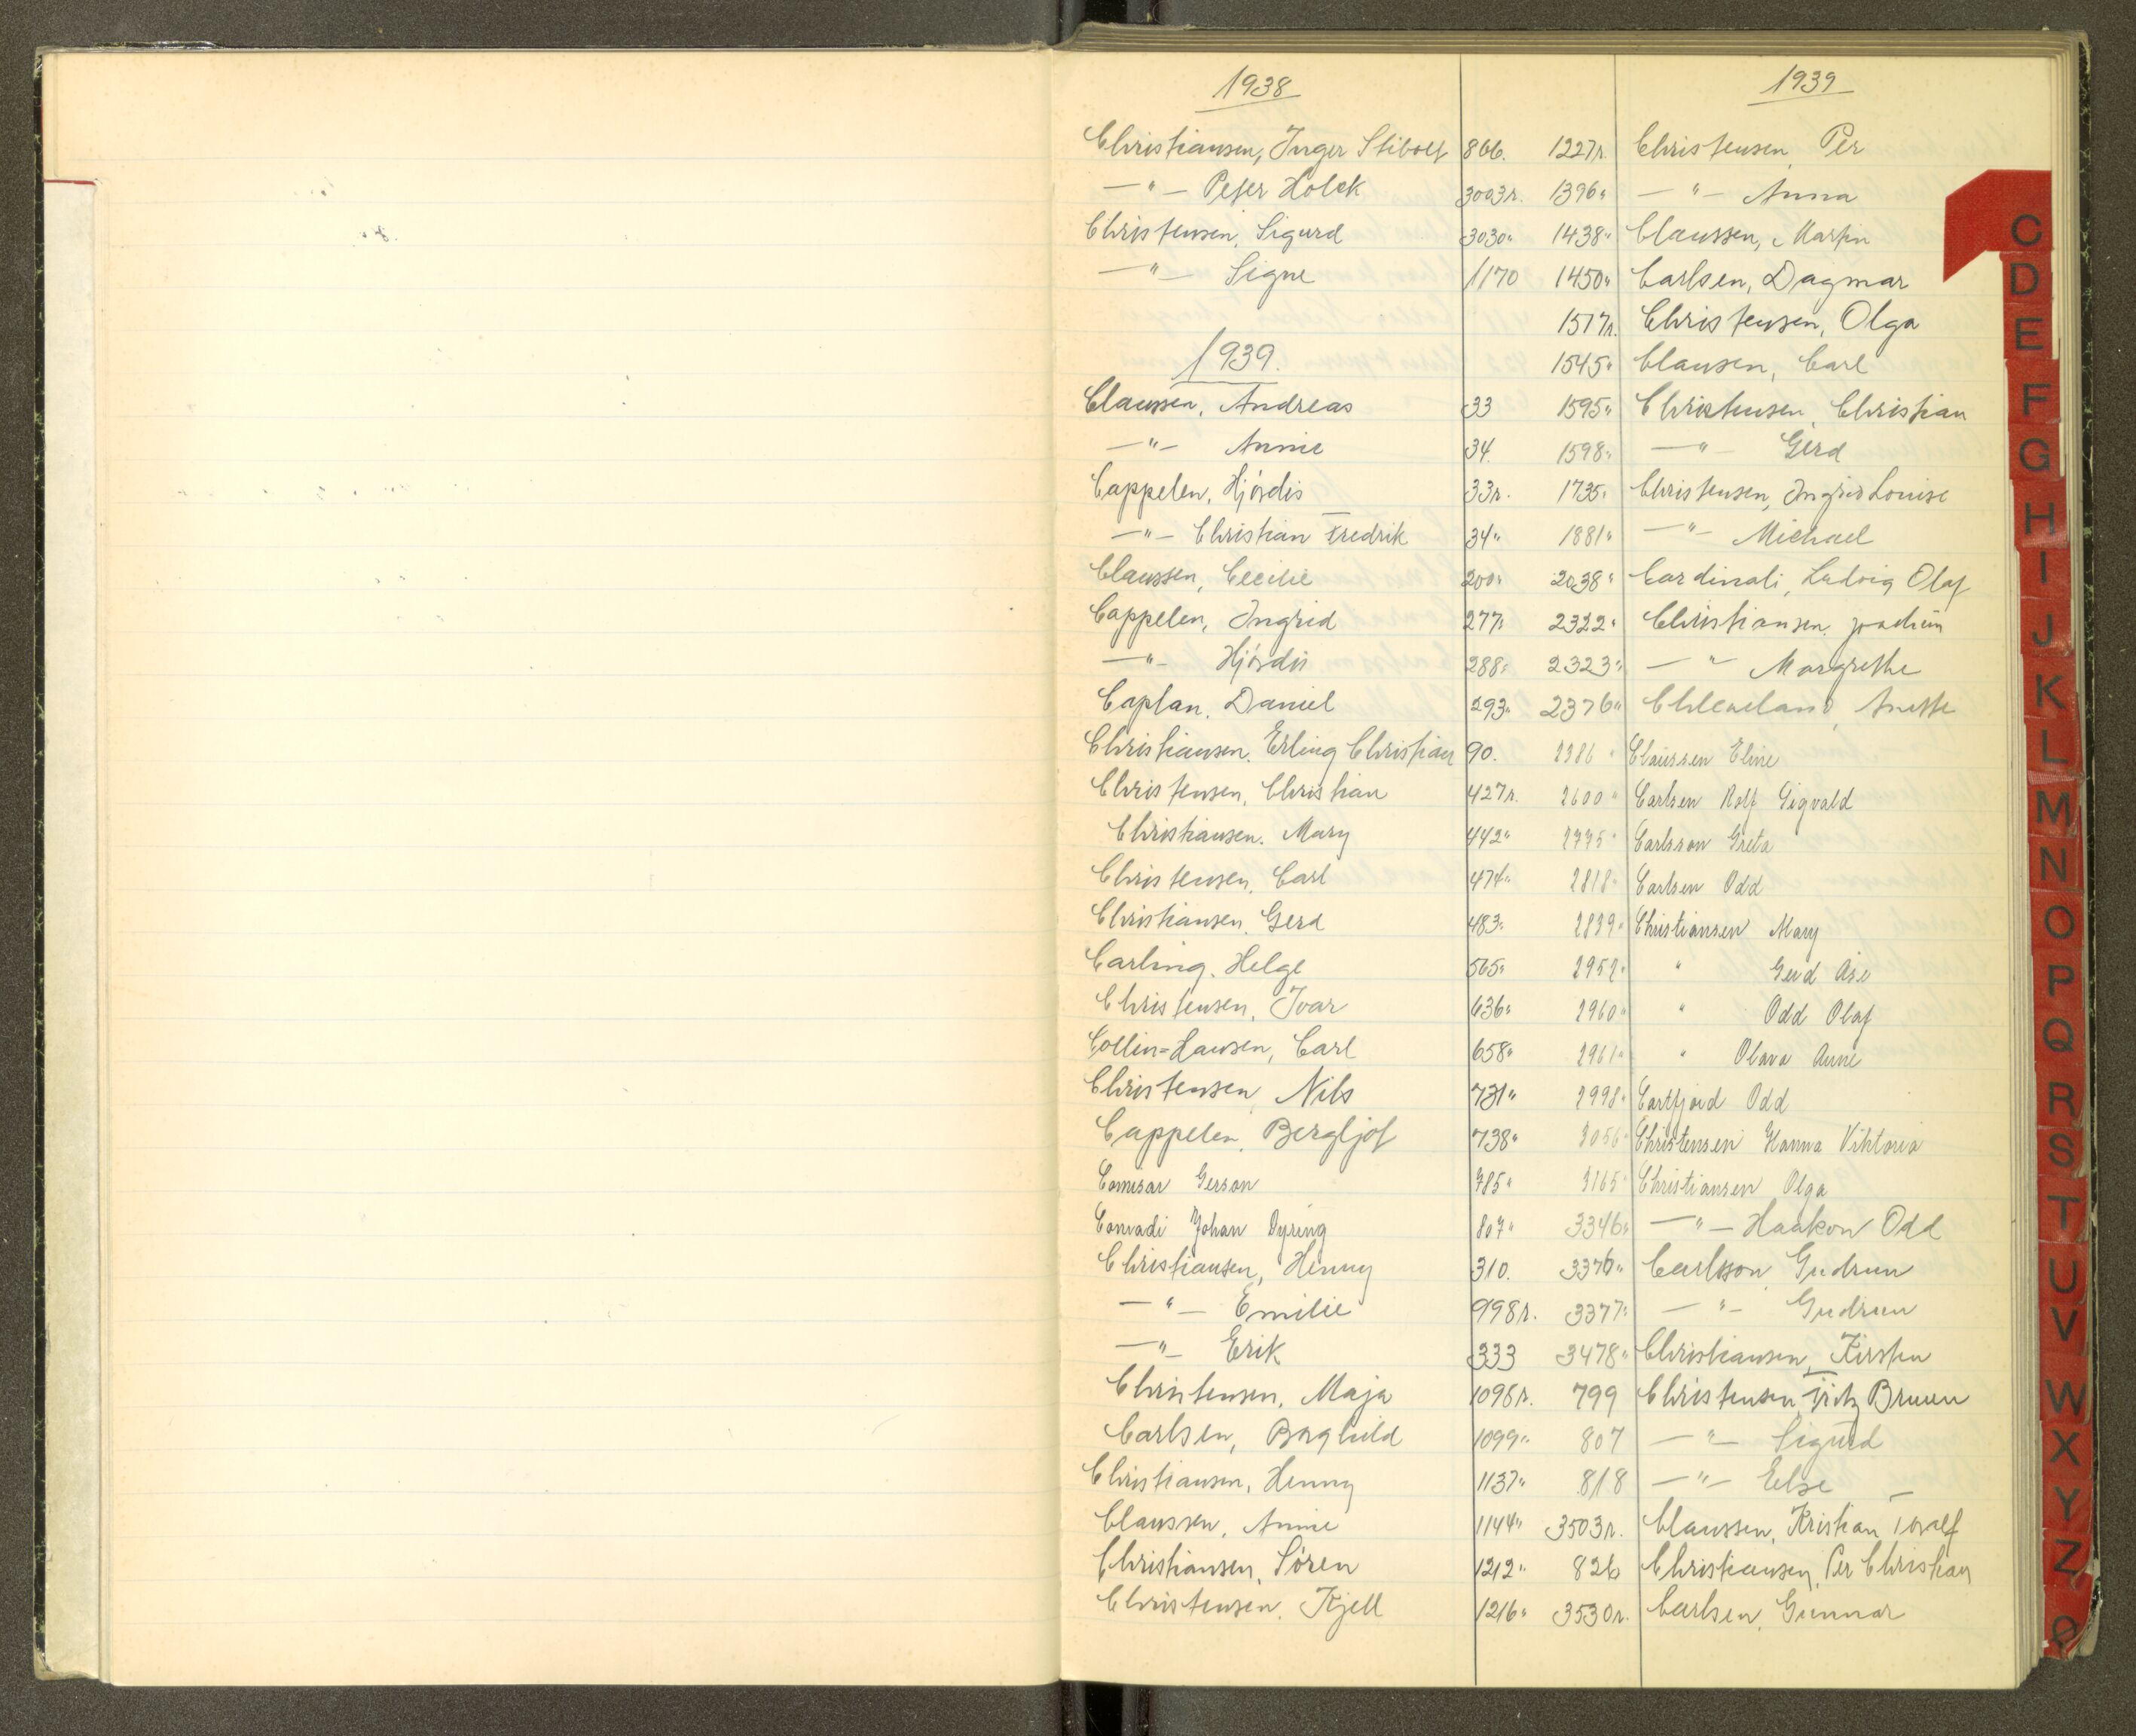 1938
Christiansen, Inger Stibolt 866.
—"— Peter Holck 3003r.
Christensen, Sigurd 3030"
—"— Signe 1170
1939.
Claussen, Andreas 33
—"— Annie 34.
Cappelen, Hjördis 33r.
—"— Christian Fredrik 34"
Claussen, Cecilie 200"
Cappelen, Ingrid 277"
—"— Hjördis 288"
Caplan, Daniel 293"
Christiansen, Erling Christian 90.
Christensen, Christian 427r.
Christiansen, Mary 442"
Christensen, Carl 474"
Christiansen, Gerd 483"
Carling, Helge 565"
Christensen, Ivar 636"
Collin=Hansen, Carl 658"
Christensen, Nils 731"
Cappelen, Bergljot 738"
Comisar Gerson 785"
Conradi Johan Dyring 807"
Christiansen, Henny 310.
—"— Emilie 998r.
—"— Erik 333
Christensen, Maja 1098r.
Carlsen, Borghild 1099"
Christiansen, Henny 1137"
Claussen, Annie 1144"
Christiansen, Sören 1212"
Christensen, Kjell 1216"
1939
1227r. Christensen, Per
1396" —"— Anna
1438" Claussen, Martin
1450" Carlsen, Dagmar
1517r. Christensen, Olga
1545" Clausen, Carl
1595" Christensen, Christian
1598" —"— Gerd
1735" Christensen, Ingrid Louise
1881" —"— Michael
2038" Cardinali, Ludvig Olaf
2322" Christiansen, Joachim
2323" —"— Margrethe
2376" Anette
2386" Claussen Eline
2600" Carlsen Rolf Sigvald
2775" Carlsson Greta
2818" Carlsen Odd
2839" Christiansen Mary
2959" " Gerd Åse
2960" " Odd Olaf
2961" " Olava Anne
2998" Cartfjord Odd
3056" Christensen Hanna Viktoria
3165" Christiansen Olga
3346" —"— Haakon Odd
3376" Carlsson Gudrun
3377" —"— Gudrun
3478" Christiansen, Kirsten
799 Christensen Fritz Bruun
807 —"— Sigurd
818 —"— Else
3503r. Claussen, Kristian Thralf
826 Christiansen, Per Christian
3530r. Carlsen, Gunnar
C
D
E
F
G
H
I
J
K
L
M
N
O
P
Q
R
S
T
U
V
W
X
Y
Z
Ø